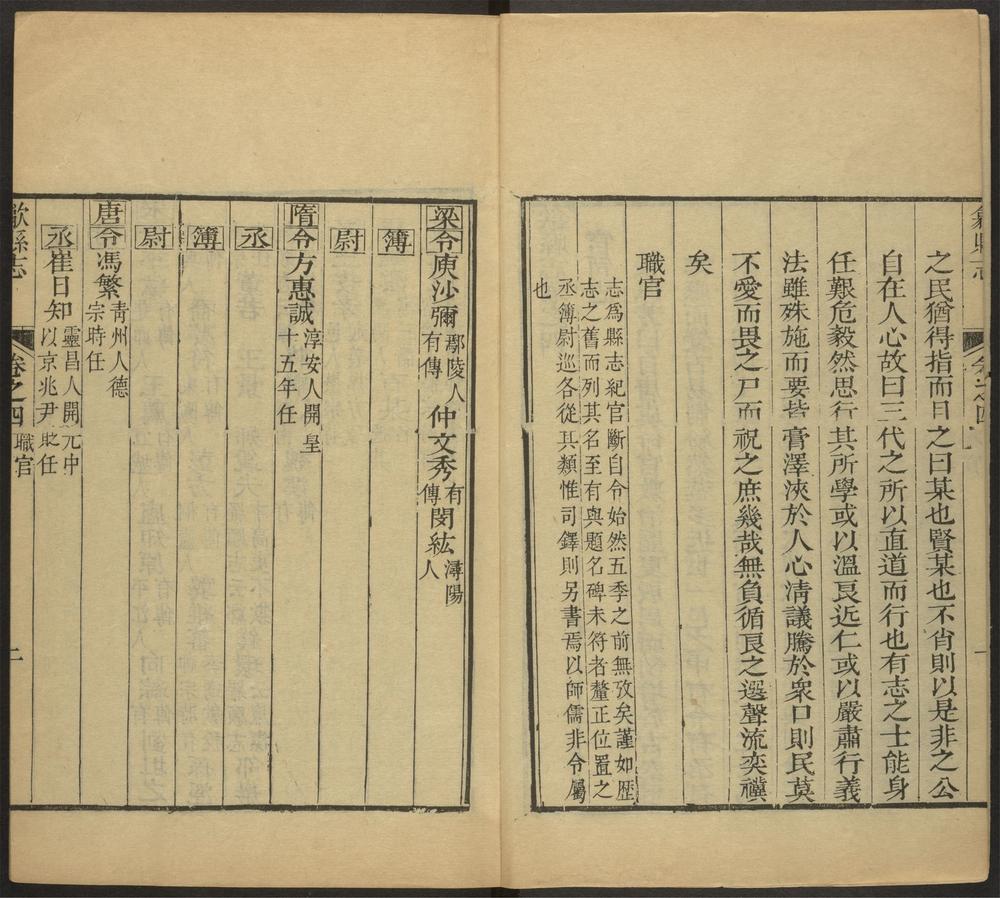 之民猶得指而目之曰某也賢某也不肖則以是非之公
自在人心故曰三代之所以直道而行也有志之士能身
任艱危毅然思行其所學或以溫良近仁或以嚴肅行義
法雖殊施而要皆膏澤浹於人心淸議騰於衆口則民莫
不愛而畏之尸而祝之庶幾哉無負循良之選聲流奕禩
矣
職官
志爲縣志紀官斷自令始然五季之前無攷矣謹如歷
志之舊而列其名至有與題名碑未符者釐正位置之
丞簿尉巡各從其類惟司鐸則另書焉以師儒非令屬
也
梁令庾沙彌鄢陵人有傳仲文秀有傳閔紘潯陽人
簿
尉
隋令方惠誠淳安人開皇十五年任
丞
簿
尉
唐令馮繁靑州人德宗時任
丞崔日知靈昌人開元中以京兆尹貶任
歙縣志
卷之四
職官
二